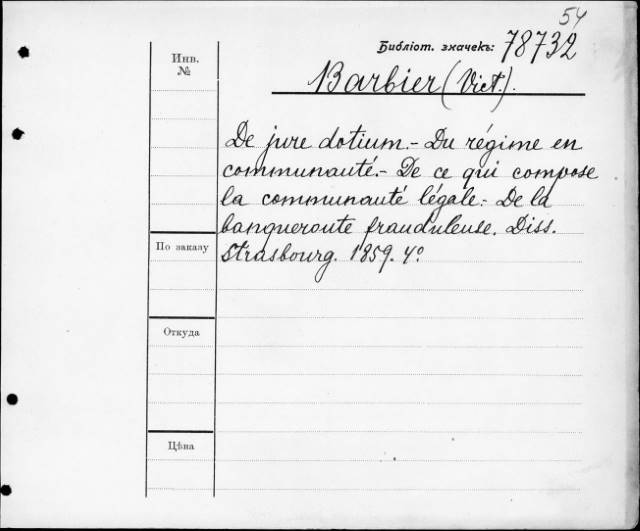 54
Библіот. значекъ: 78732
Инв.
№
Barbier (Vict.).
De jure dotium. - Du régime en
communauté. - De ce qui compose
la communauté légale. - De la
banqueroute frauduleuse. Diss.
Strasbourg. 1859. 4°
По заказу
Откуда
Цѣна